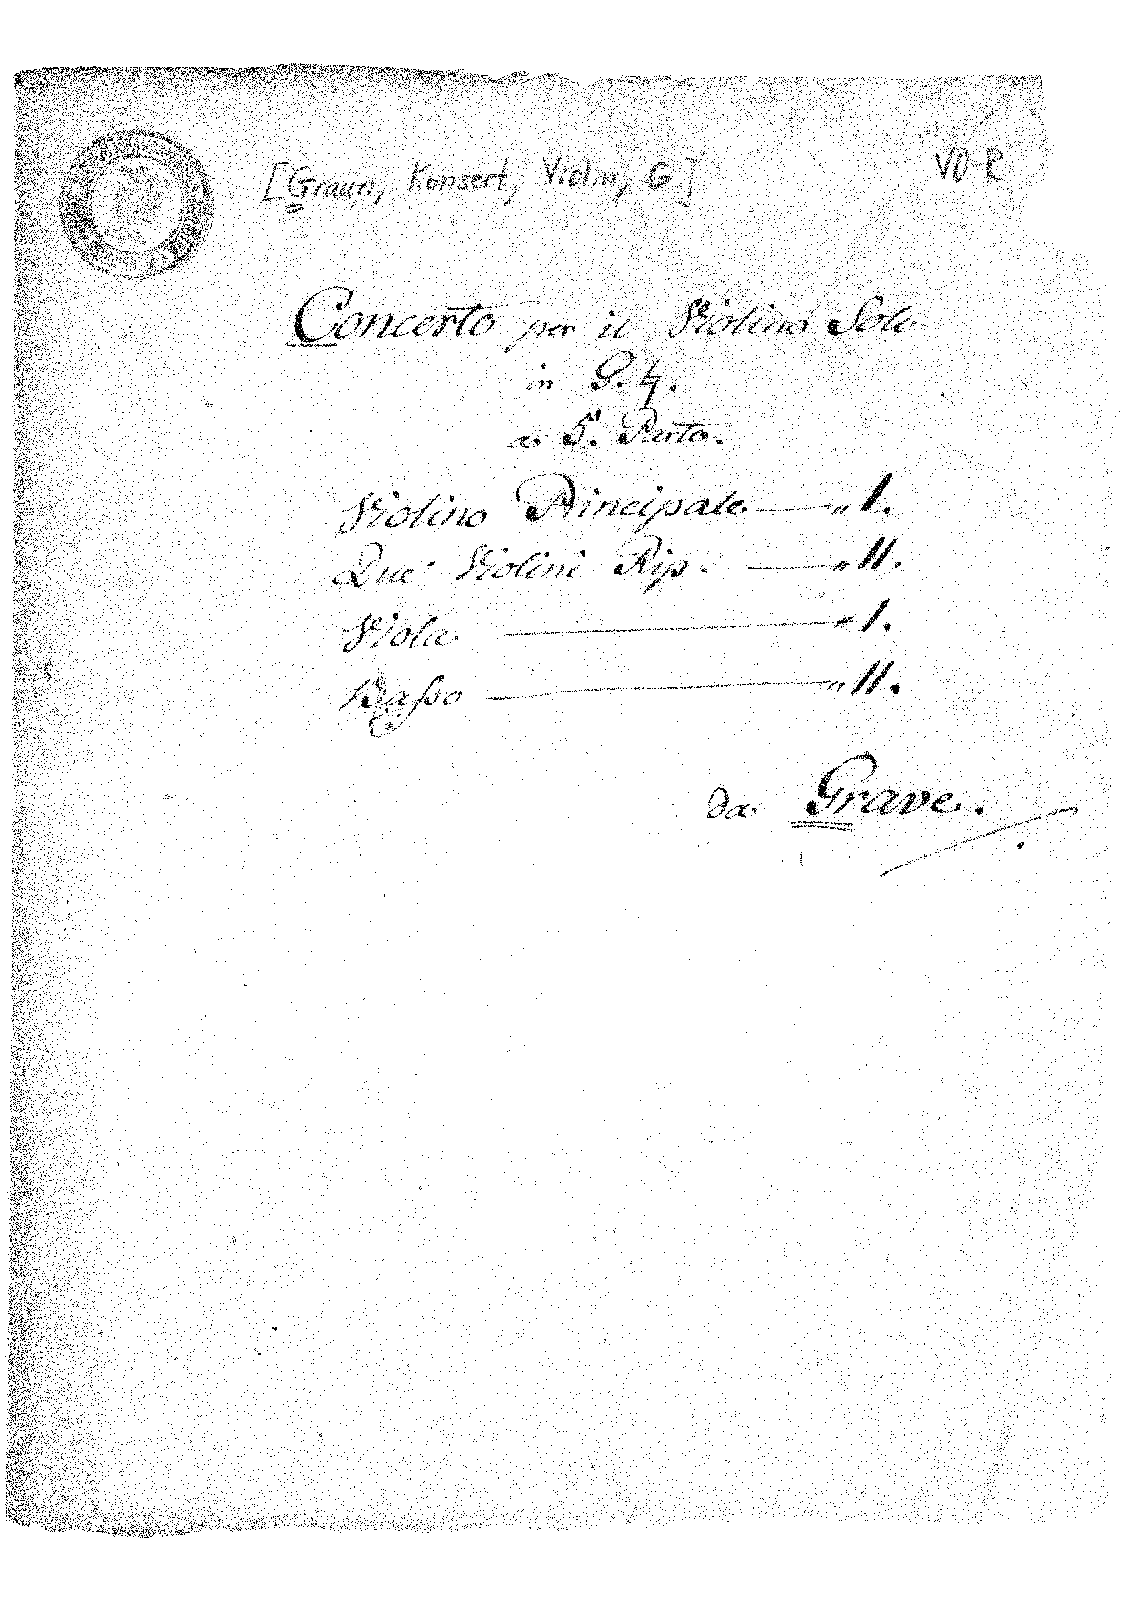 [Graun, Konsert, Violin, G]
VO-R
Concerto per il Violino Solo
in G. ♮.
a 5. Parto.
Violino Principale — „ I.
Due Violini Rip. — „ II.
Viola — „ I.
Basso — „ II.
da Grave.